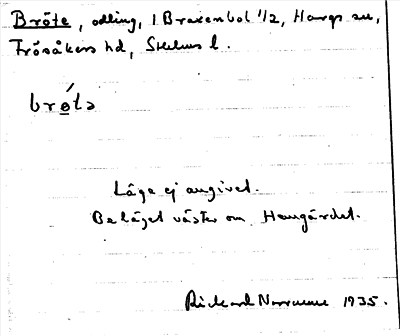 Bröte, odling, 1 Braxenbol 1/2, Hargs sn,
Frösåkers hd, Sthlms l.
brǿtə
Läge ej angivet.
Beläget väster om Hemgärdet.
Rickard Norrunne 1935.